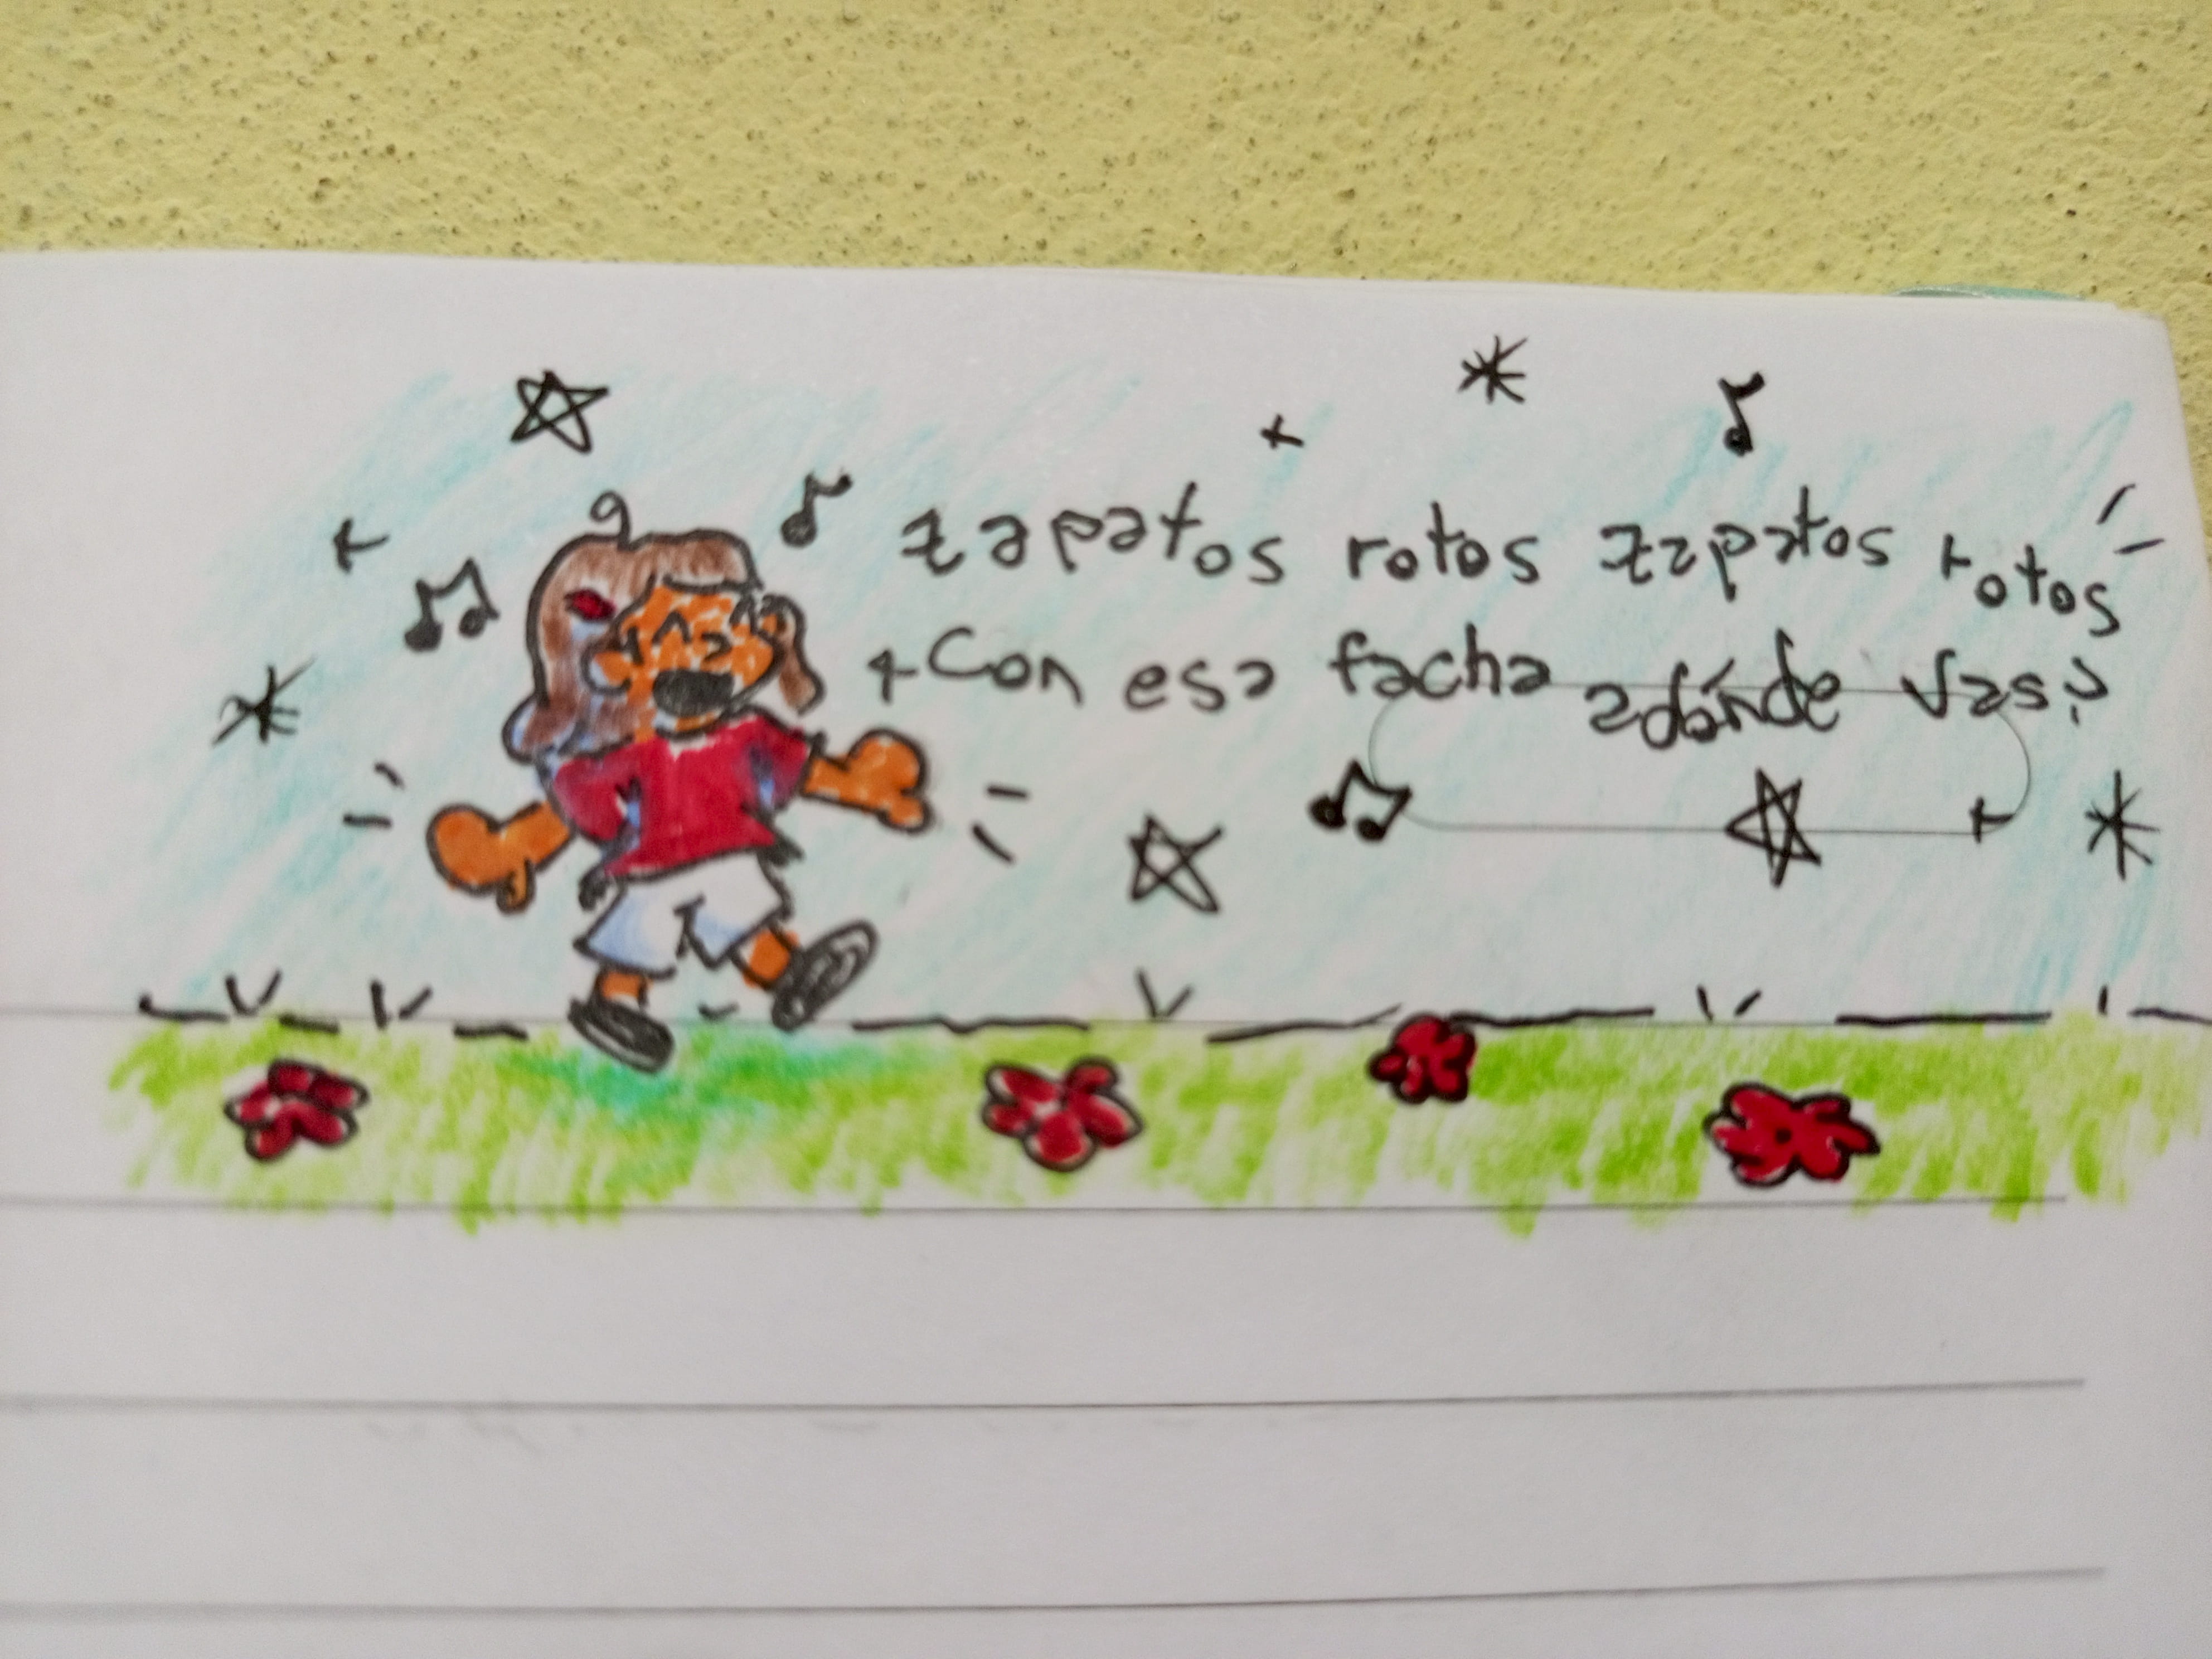 zapatos rotos zapatos rotos
Con esa facha adónde vas?